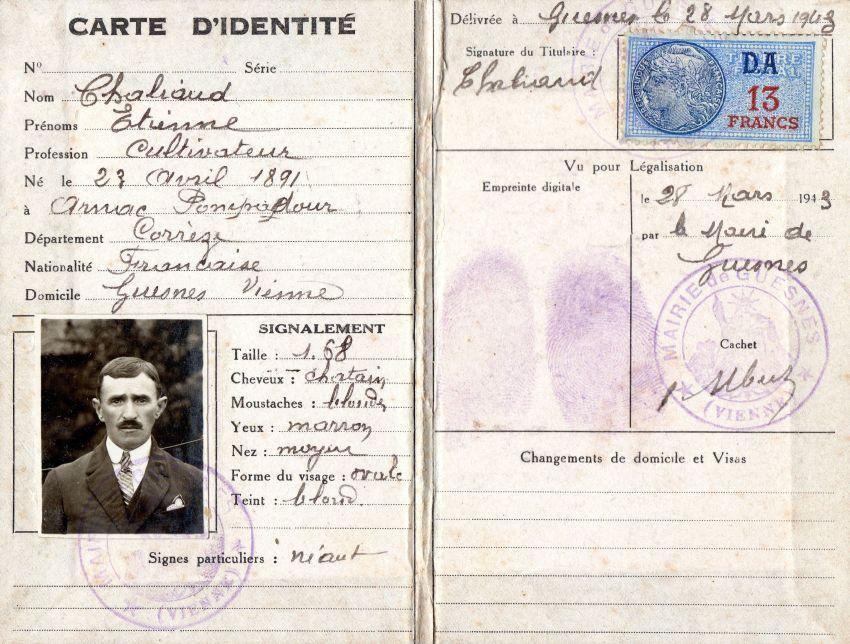 CARTE D'IDENTITÉ
N° Série
Nom Chaliaud
Prénoms Etienne
Profession Cultivateur
Né le 23 Avril 1891
à Arnac Pompadour
Département Corrèze
Nationalité Française
Domicile Guesnes Vienne
SIGNALEMENT
Taille : 1.68
Cheveux : chatain
Moustaches : blondes
Yeux : marron
Nez : moyen
Forme du visage : ovale
Teint : blond.
Signes particuliers : néant
MAIRIE
(VIENNE)
Délivrée à Guesnes le 28 Mars 1943
Signature du Titulaire :
Chaliaud
D.A
13
FRANCS
Vu pour Légalisation
Empreinte digitale
le 28 Mars 1943
par le Maire de
Guesnes
MAIRIE DE GUESNES
Cachet
(VIENNE)
Changements de domicile et Visas